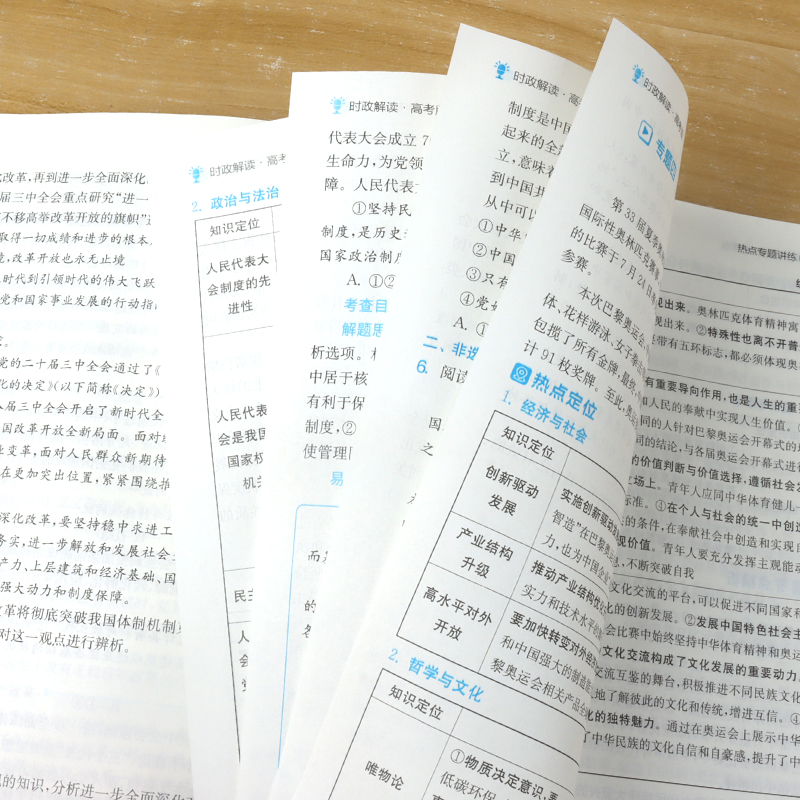 改革,再到进一步全面深化
届三中全会重点研究“进一
不移高举改革开放的旗帜”
取得一切成绩和进步的根本
竟,改革开放也永无止境
时代到引领时代的伟大飞跃
党和国家事业发展的行动指
党的二十届三中全会通过了《
化的决定》(以下简称《决定》)
届三中全会开启了新时代全
国改革开放全新局面。面对
业变革,面对人民群众新期待
在更加突出位置,紧紧围绕
深化改革,要坚持稳中求进工
务实,进一步解放和发展社会
产力、上层建筑和经济基础、国
强大动力和制度保障。
革将彻底突破我国体制机制
对这一观点进行辨析。
的知识,分析进一步全面深化
时政解读·高考
2. 政治与法治
知识定位
人民代表大
会制度的先
进性
人民代表
会是我国
国家权
机
民主
人
会
时政解读·高考
代表大会成立7
生命力,为党领
障。人民代表
①坚持民
制度,是历史
国家政治制度
A. ①②
考查目
解题思
析选项。
中居于核
有利于保
制度,②
使管理
易
而
的
时政解读·高
制度是中国
起来的全
立,意味着
到中国共
从中可以
①中华
②中国
③只有
④党
A. ①
二、非选
6. 阅读
国
之
时政解读·高考
专题
第33届夏季奥
国际性奥林匹克赛事
的比赛于7月24日
参赛。
本次巴黎奥运会,
体、花样游泳、女子拳击
包揽了所有金牌,最终,中
计91枚奖牌。至此,奥运
热点定位
1. 经济与社会
知识定位
创新驱动
发展
实施创新驱动
智造”在巴黎奥运
力,也为中国企业
产业结构
升级
推动产业结构优化
实力和技术水平的
高水平对外
开放
要加快转变对外经济
和中国强大的制造能
黎奥运会相关产品全
2. 哲学与文化
知识定位
唯物论
①物质决定意识,要
低碳环保
热点专题讲练
现出来。奥林匹克体育精神寓
现出来。②特殊性也离不开普
带有五环标志,都必须体现奥
有重要导向作用,也是人生的重要
和人民的奉献中实现人生价值。
同的人针对巴黎奥运会开幕式的
同的结论,与各届奥运会开幕式进
的价值判断与价值选择,遵循社会发
立场上。青年人应同中华体育健儿一
标准。④在个人与社会的统一中创造
的条件,在奉献社会中创造和实现自
现价值。青年人要充分发挥主观能动
,不断突破自我
文化交流的平台,可以促进不同国家和
化的创新发展。②发展中国特色社会主
会比赛中始终坚持中华体育精神和奥运
文化交流构成了文化发展的重要动力。
流互鉴的舞台,积极推进不同民族文化
地了解彼此的文化和传统,增进互信。④
化的独特魅力。通过在奥运会上展示中华
了中华民族的文化自信和自豪感,提升了中